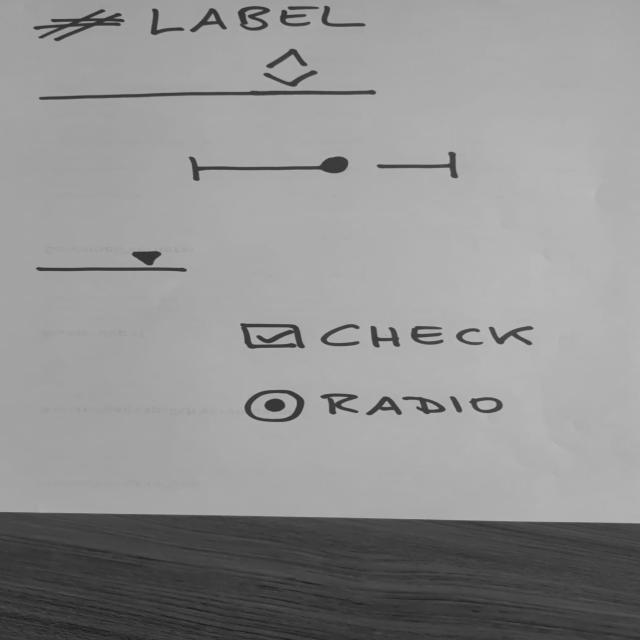 # LABEL
CHECK
RADIO